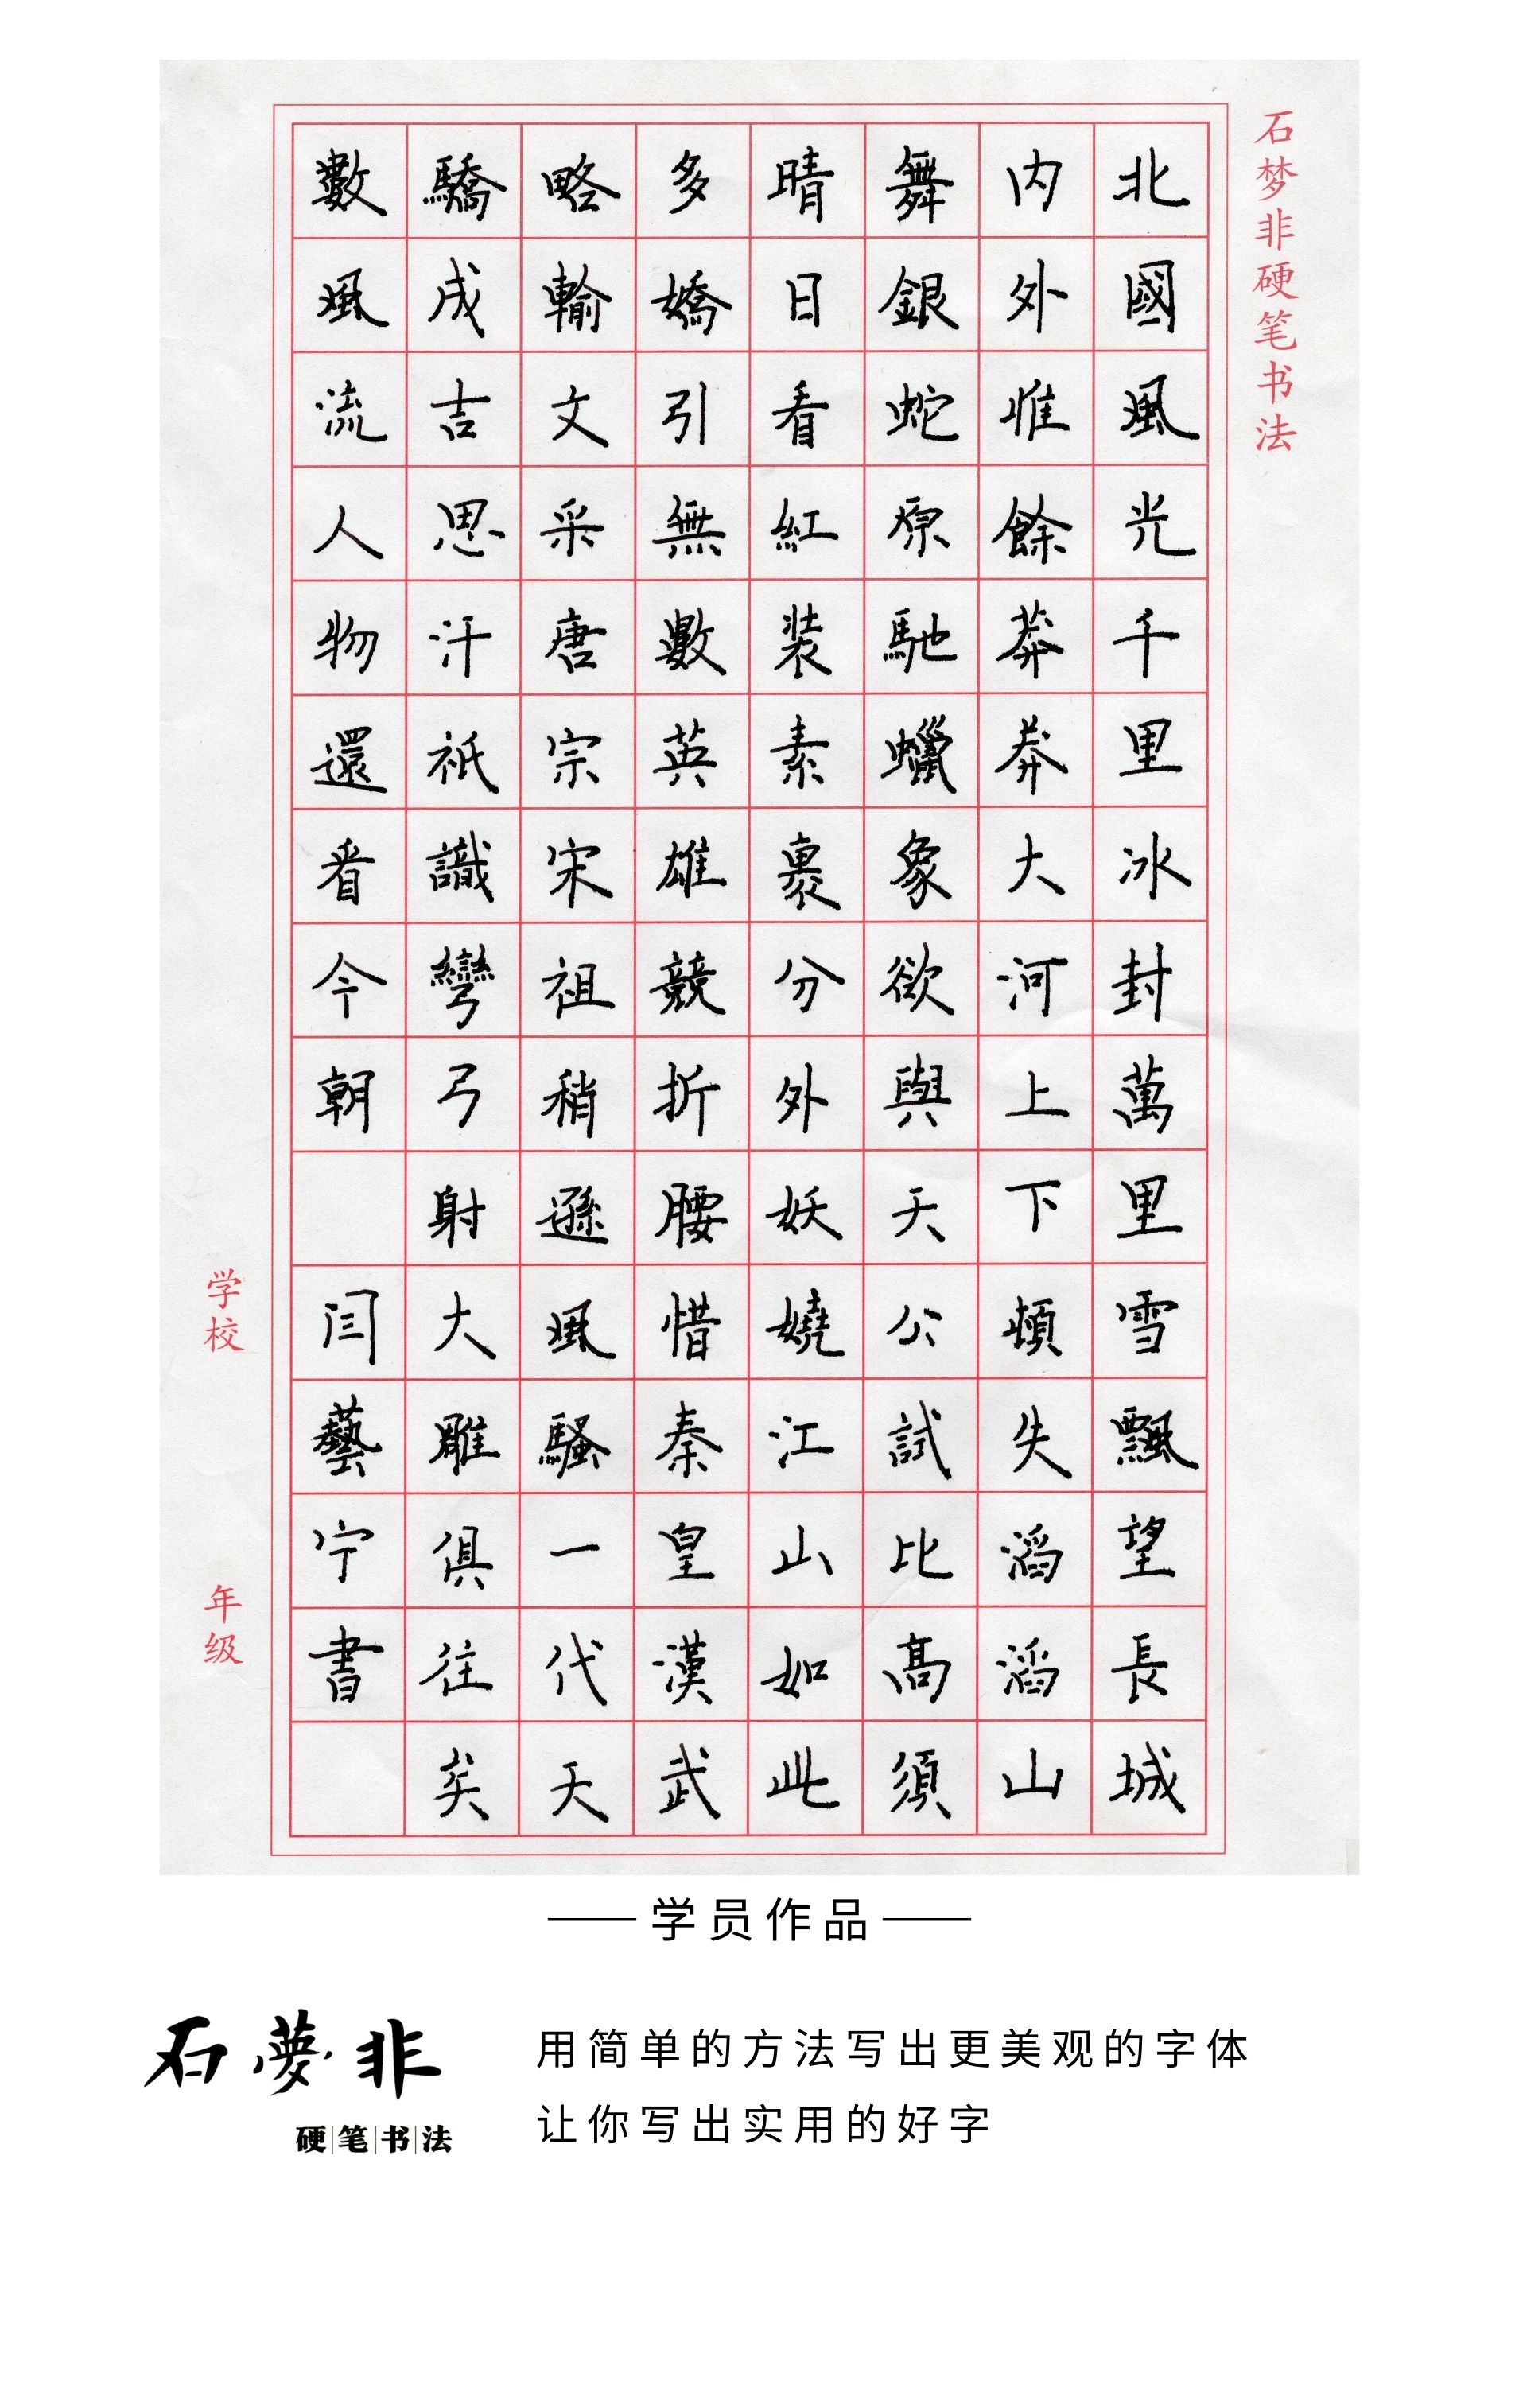 石梦非硬笔书法
北國風光千里冰封萬里雪飄望長城
内外惟餘莽莽大河上下頓失滔滔山
舞銀蛇原馳蠟象欲與天公試比高須
晴日看紅装素裹分外妖嬈江山如此
多嬌引無數英雄競折腰惜秦皇漢武
略輸文采唐宗宋祖稍遜風騷一代天
驕成吉思汗祇識彎弓射大雕俱往矣
數風流人物還看今朝 闫藝宁書
学校 年级
学员作品
石夢非
硬笔书法
用简单的方法写出更美观的字体
让你写出实用的好字